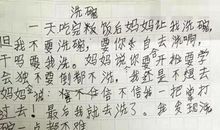 洗碗
一天吃完饭后妈妈让我洗碗,
但我不要洗碗,要你亲自去洗啊,
干吗要我洗。妈妈说你要开始要学
会独不要倒都不洗,我还是不想去
妈妈说:信不信不信我一把掌打
过去!最后我就去洗了。我发现洗
碗一点都不难